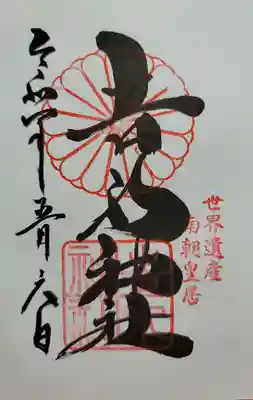 世界遺産
南朝皇居
吉水神社
令和四年五月六日